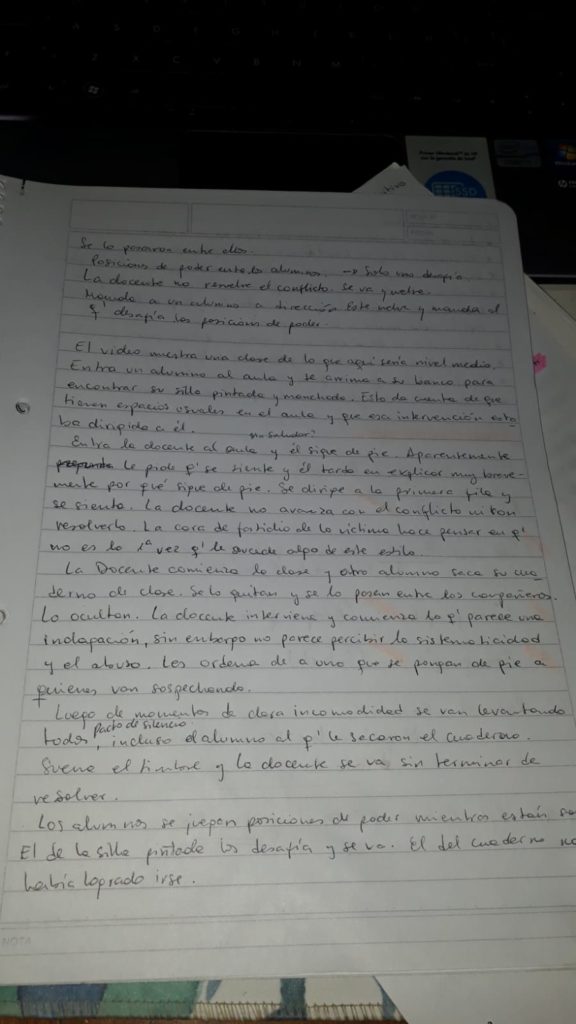 Se lo pasaron entre ellos.
Posiciones de poder entre los alumnos. → Solo uno desafía
La docente no resuelve el conflicto. Se va y vuelve.
Manda a un alumno a dirección. Este vuelve y manda al
q' desafía las posiciones de poder.
El video muestra una clase de lo que aquí sería nivel medio.
Entra un alumno al aula y se arrima a su banco para
encontrar su silla pintada y manchada. Esto da cuenta de que
tienen espacios usuales en el aula y que esa intervención esta
ba dirigida a él.
sin saludar?
Entra la docente al aula y él sigue de pie. Aparentemente
le pide q' se siente y él tarda en explicar muy breve-
mente por qué sigue de pie. Se dirige a la primera fila y
se sienta. La docente no avanza con el conflicto ni con
resolverlo. La cara de fastidio de la víctima hace pensar en q'
no es la 1ª vez q' le sucede algo de este estilo.
La Docente comienza la clase y otro alumno saca su cua
derno de clase. Se lo quitan y se lo pasan entre los compañeros.
Lo ocultan. La docente interviene y comienza lo q' parece una
indagación, sin embargo no parece percibir la sistematicidad
y el abuso. Les ordena de a uno que se pongan de pie a
quienes van sospechando.
Luego de momentos de clara incomodidad se van levantando
pacto de silencio
todos, incluso el alumno al q' le sacaron el cuaderno.
Suena el timbre y la docente se va sin terminar de
resolver.
Los alumnos se juegan posiciones de poder mientras están
El de la silla pintada los desafía y se va. El del cuaderno no
había logrado irse.
NOTA
SSD
hp